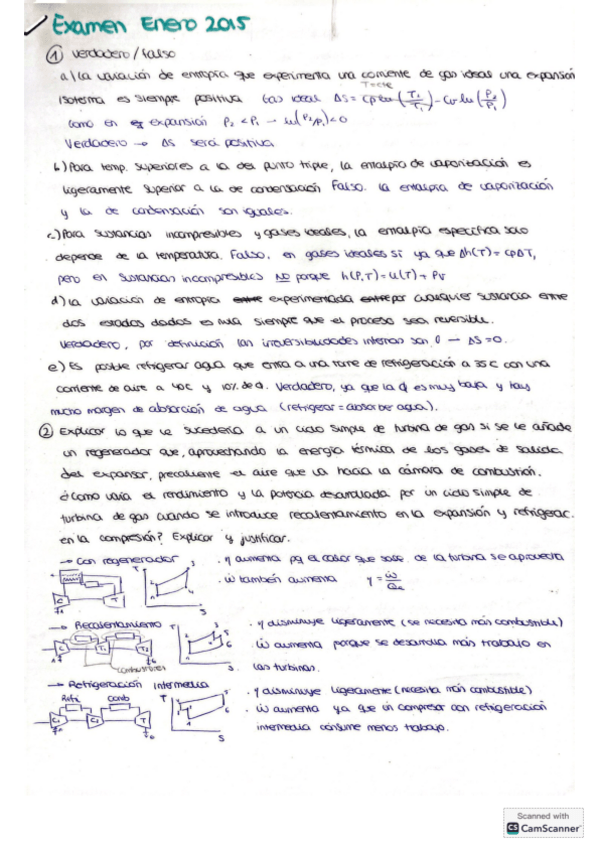 Examen Enero 2015
① Verdadero / Falso
a) La variación de entropía que experimenta una corriente de gas ideal es una expansión
T=cte
isoterma es siempre positiva Gas ideal ΔS= cp ln(T2/T1) - Cv ln(P2/P1)
como en expansión P2 < P1 → ln(P2/P1)<0
Verdadero → ΔS será positiva
b) Para temp. superiores a la del punto triple, la entalpía de vaporización es
ligeramente superior a la de condensación Falso. La entalpía de vaporización
y la de condensación son iguales.
c) Para sustancias incompresibles y gases ideales, la entalpía específica solo
depende de la temperatura. Falso, en gases ideales si ya que Δh(T) = cpΔT,
pero en sustancias incompresibles NO porque h(P,T)=u(T) + Pv
d) La variación de entropía experimentada por cualquier sustancia entre
dos estados dados es nula siempre que el proceso sea reversible.
Verdadero, por definición las irreversibilidades internas son 0 → ΔS=0.
e) Es posible refrigerar agua que entra a una torre de refrigeración a 35C con una
corriente de aire a 40C y 10% de ϕ. Verdadero, ya que la ϕ es muy baja y hay
mucho margen de absorción de agua (refrigerar = absorber agua).
② Explicar lo que le sucedería a un ciclo simple de turbina de gas si se le añade
un regenerador que, aprovechando la energía térmica de los gases de salida
del expansor, precaliente el aire que va hacia la cámara de combustión.
¿Cómo varía el rendimiento y la potencia desarrollada por un ciclo simple de
turbina de gas cuando se introduce recalentamiento en la expansión y refrigerac.
en la compresión? Explicar y justificar.
→ Con regenerador · η aumenta pq el calor que sale de la turbina se aprovecha
· ẇ también aumenta η = ẇ/Qc
→ Recalentamiento · η disminuye ligeramente (se necesita más combustible)
· ẇ aumenta porque se desarrolla más trabajo en
las turbinas.
combustores
→ Refrigeración intermedia · η disminuye ligeramente (necesita más combustible)
Refri Comb · ẇ aumenta ya que un compresor con refrigeración
intermedia consume menos trabajo.
Scanned with
CS CamScanner